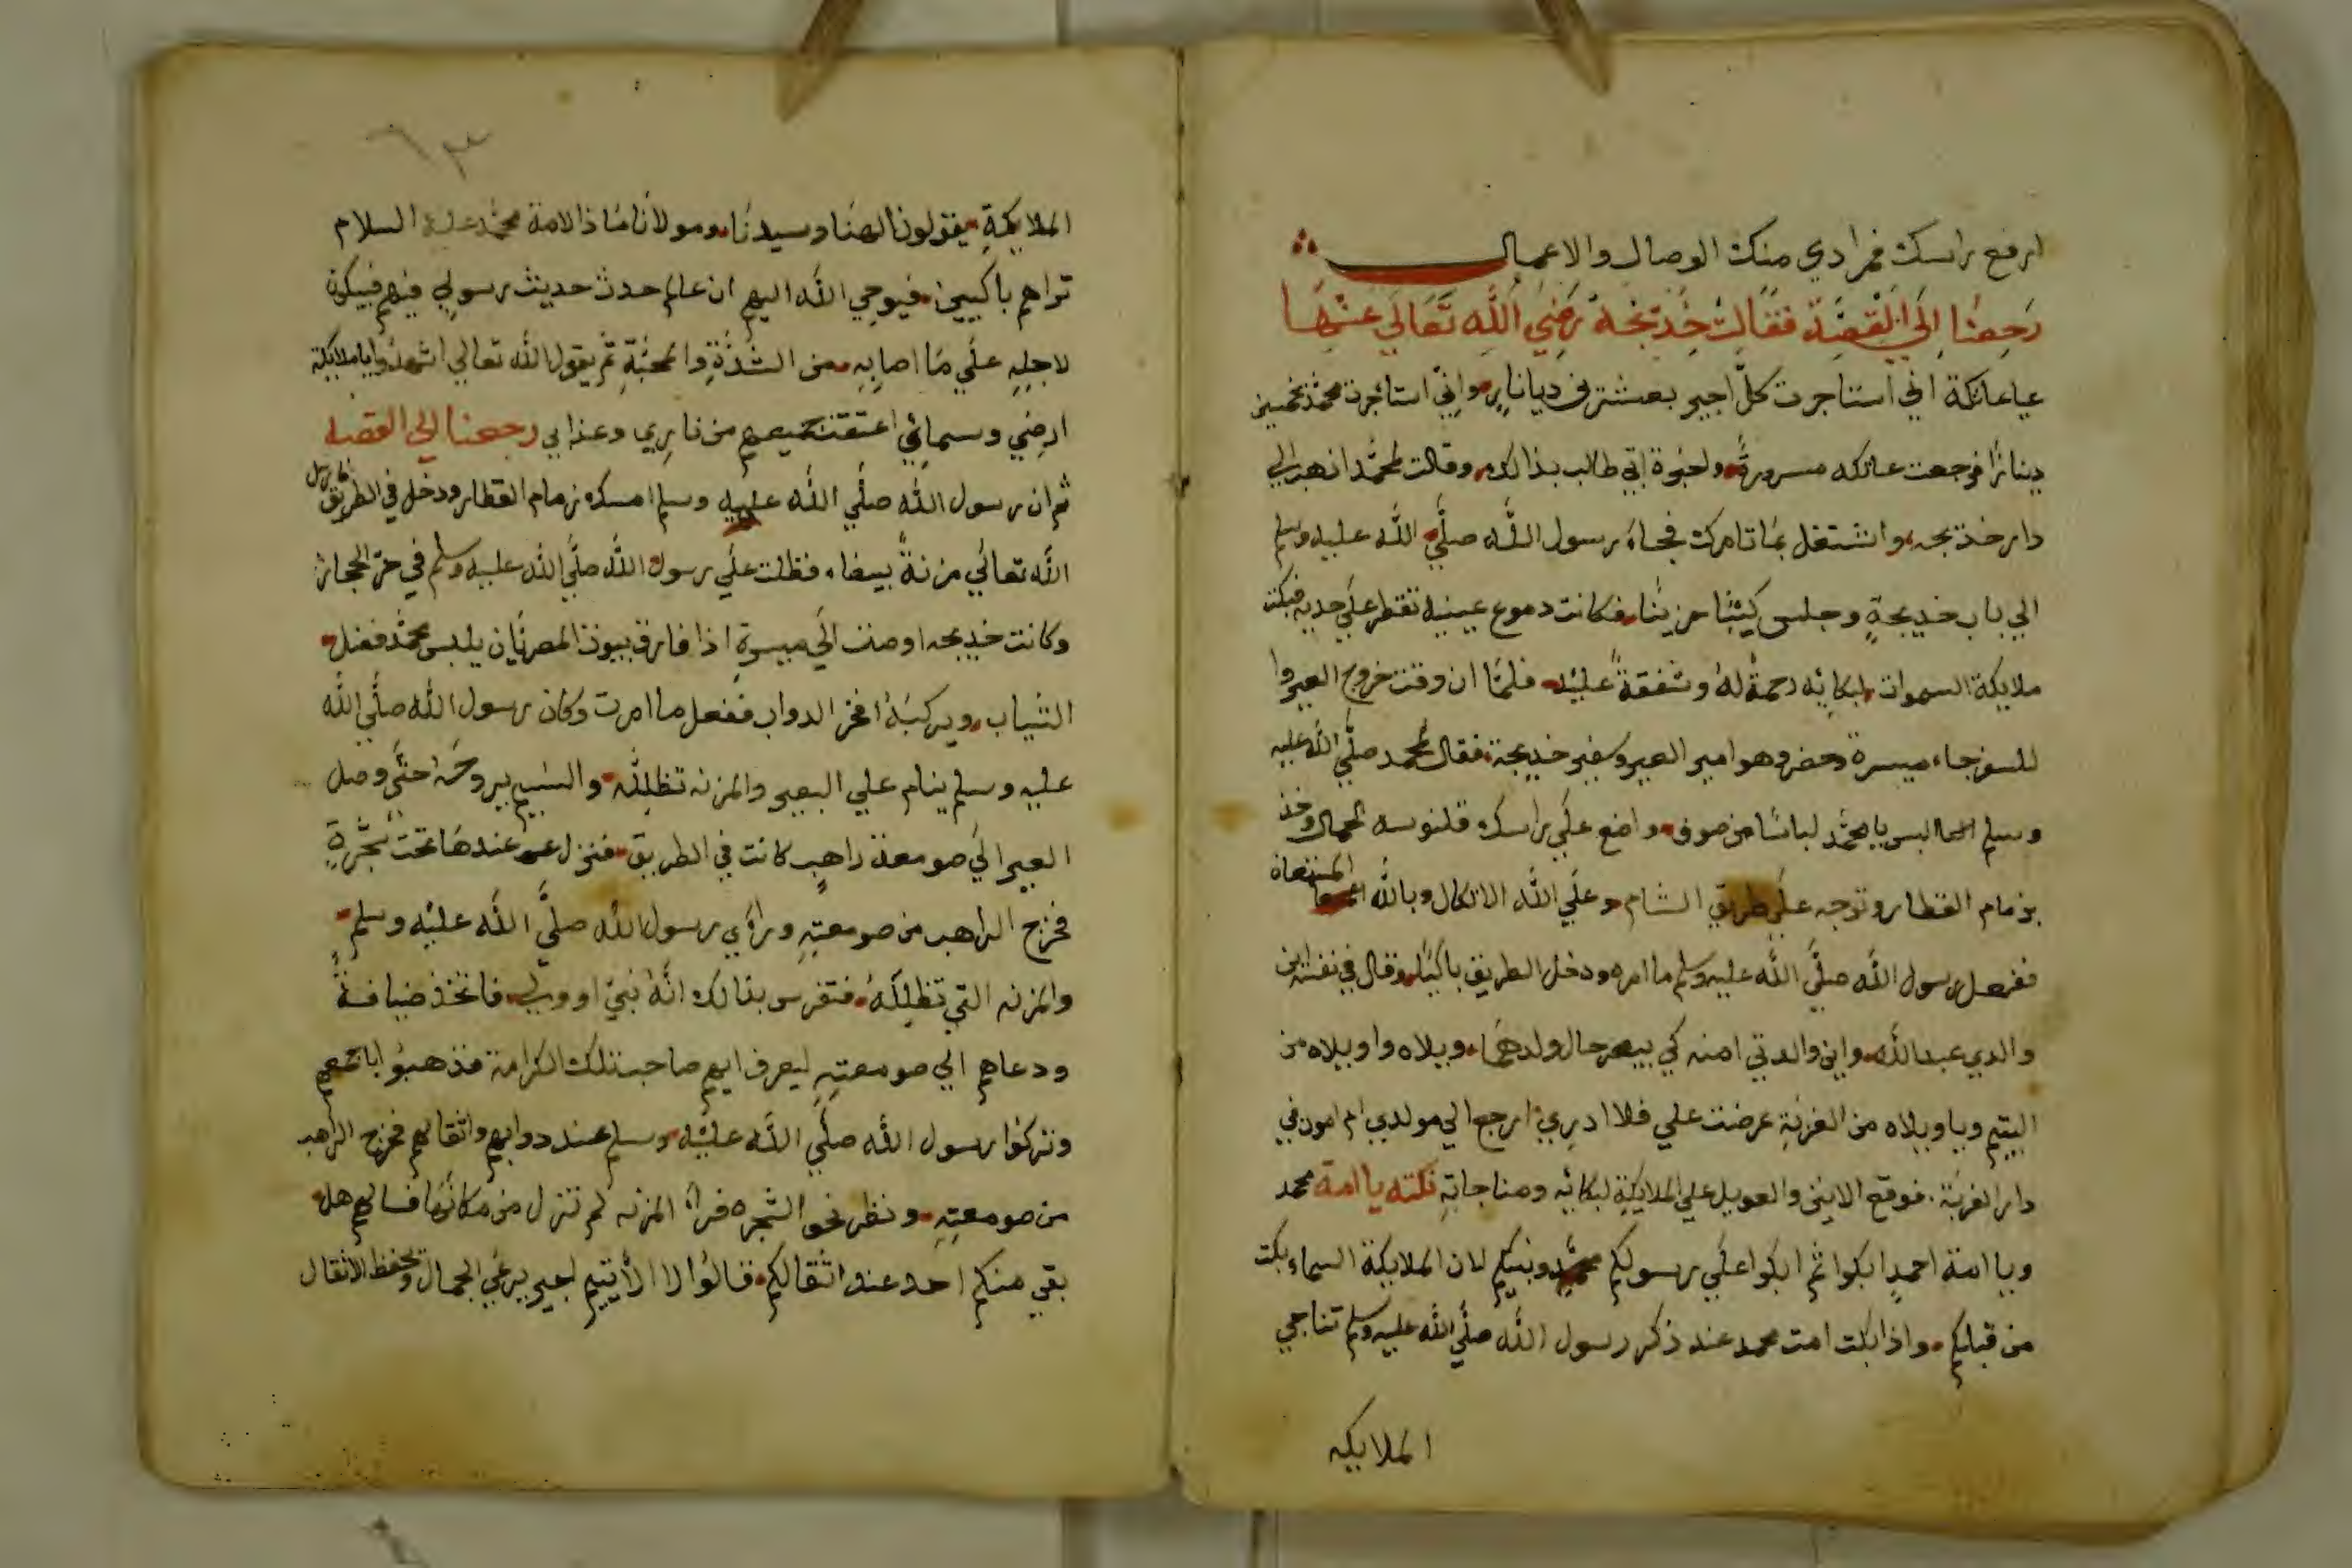 ارفع راسك فمرادي منك الوصال والاعمال
رجعنا الي القصة فقالت خديجة رضي الله تعالي عنها
يا عاتكة اني استاجرت كل اجير بعشرين دينار واني استاجرت محمد بخمسين
دينارا فرجعت عاتكه مسرورة ولحبوة ابي طالب بذالك وقالت لمحمد اذهب الي
دار خديجه واشتغل بما تامرك فجاء رسول الله صلي الله عليه وسلم
الي باب خديجة وجلس كيئبا حزينا فكانت دموع عينيه تقطر علي خديه فبكت
ملايكة السموات لبكائه رحمة له وشفقة عليه فلما ان وقت خروج العير وا
للسفر جاء ميسرة وحضر وهو امير العير وكبير خديجة فقال لمحمد صلي الله عليه
وسلم البس يا محمد لباسا من صوف واضع علي راسك قلنوسه الجمال وخذ
بزمام القطار وتوجه علي طريق الشام وعلي الله الاتكال وبالله المستعان
ففعل رسول الله صلي الله عليه وسلم ما امره ودخل الطريق باكيا وقال في نفسه اين
والدي عبد الله واين والدتي امنه كي يبصر حال ولدهما ويلاه واويلاه من
اليتيم ويا ويلاه من الغربة عرضت علي فلا ادري ارجع الي مولدي ام اموت في
دار الغربة فوقع الانين والعويل علي الملايكة لبكائه ومناجاته نكته يا امة محمد
ويا امة احمد ابكوا ثم ابكوا علي رسولكم ونبيكم لان الملايكة السماء بكت
من قبلكم واذا بكت امت محمد عند ذكر رسول الله صلي الله عليه وسلم تناجي
الملايكه
٦٣
الملايكة يقولون الهنا وسيدنا ومولانا ماذا لامة محمد عليه السلام
تراهم باكيين فيوحي الله اليهم ان عالم حدث حديث رسولي فيهم فيبكون
لاجله علي ما اصابه من الشدة والمحبة ثم يقول الله تعالي اشهدوا يا ملايكة
ارضي وسمائي اعتقت جميعهم من ناري وعذابي رجعنا الي القصه
ثم ان رسول الله صلي الله عليه وسلم امسك زمام القطار ودخل في الطريق فارسل
الله تعالي مزنة بيضاء فظلت علي رسول الله صلي الله عليه وسلم في حر الحجاز
وكانت خديجه اوصت الي ميسرة اذا فارق بيوت المصر بان يلبس محمد فضل
الثياب ويركبه افخر الدواب ففعل ما امرت وكان رسول الله صلي الله
عليه وسلم ينام علي البعير والمزنه تظلله والنسيم يروحه حتي وصل
العير الي صومعة راهب كانت في الطريق فنزل عندها تحت شجرة
فخرج الراهب من صومعته وراي رسول الله صلي الله عليه وسلم
والمزنه التي تظلله فتفرس بذالك انه نبي او ولي فاتخذ ضيافة
ودعاهم الي صومعته ليعرف ايهم صاحب تلك الكرامة فذهبوا باجمعهم
وتركوا رسول الله صلي الله عليه وسلم عند دوابهم واثقالهم فخرج الراهب
من صومعته ونظر نحو الشجره فراا المزنه لم تنزل من مكانها فسالهم هل
بقي منكم احد عند اثقالكم قالوا لا الا يتيم اجير يرعي الجمال ويحفظ الاثقال